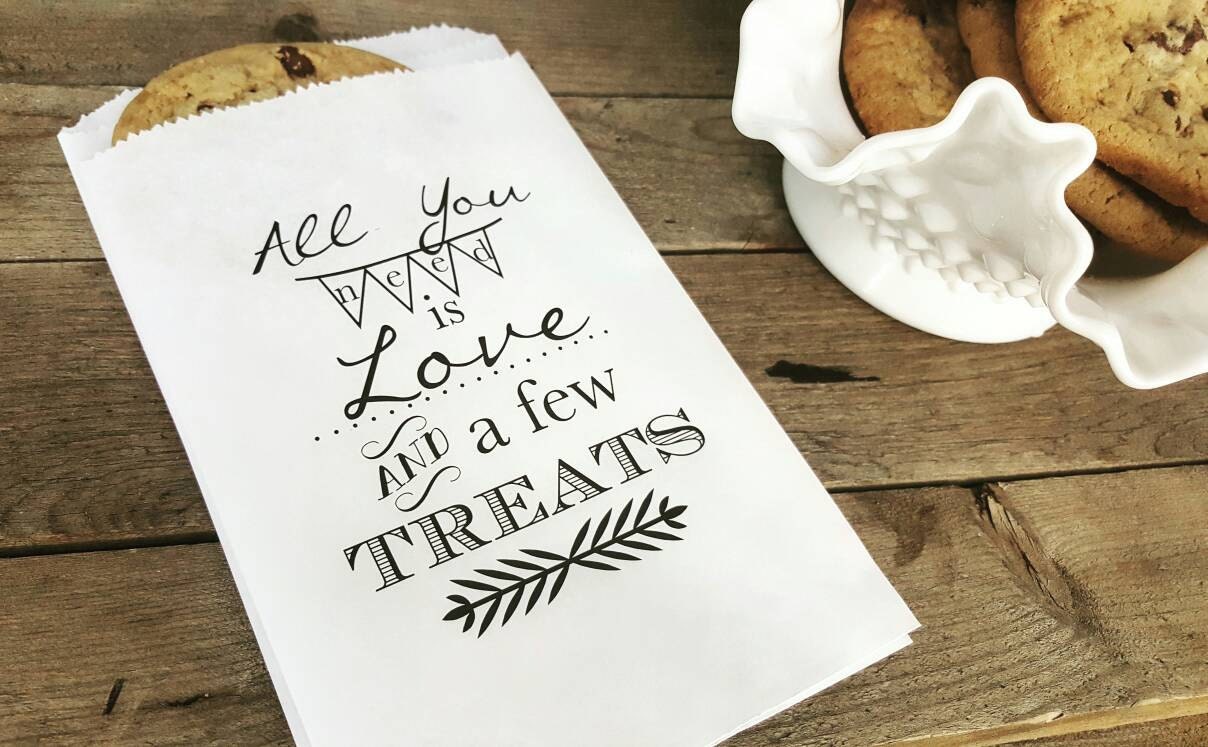 All You
need
is
Love
AND a few
TREATS